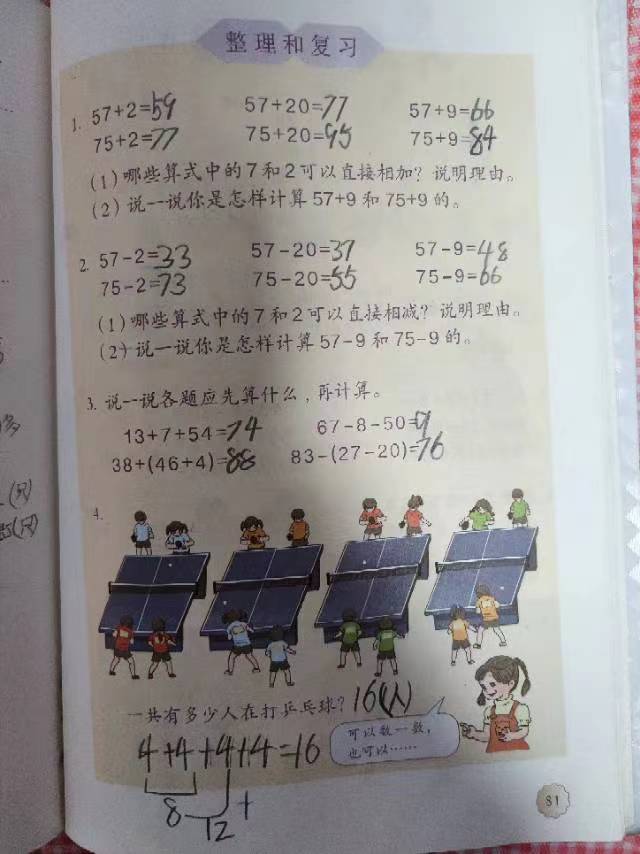 整理和复习
1. 57+2=59 57+20=77 57+9=66
75+2=77 75+20=95 75+9=84
(1) 哪些算式中的7和2可以直接相加？说明理由。
(2) 说一说你是怎样计算57+9和75+9的。
2. 57-2=33 57-20=37 57-9=48
75-2=73 75-20=55 75-9=66
(1) 哪些算式中的7和2可以直接相减？说明理由。
(2) 说一说你是怎样计算57-9和75-9的。
3. 说一说各题应先算什么，再计算。
13+7+54=74 67-8-50=9
38+(46+4)=88 83-(27-20)=76
4.
一共有多少人在打乒乓球？16(人)
可以数一数，
也可以……
4+4+4+4=16
8 12 +
81